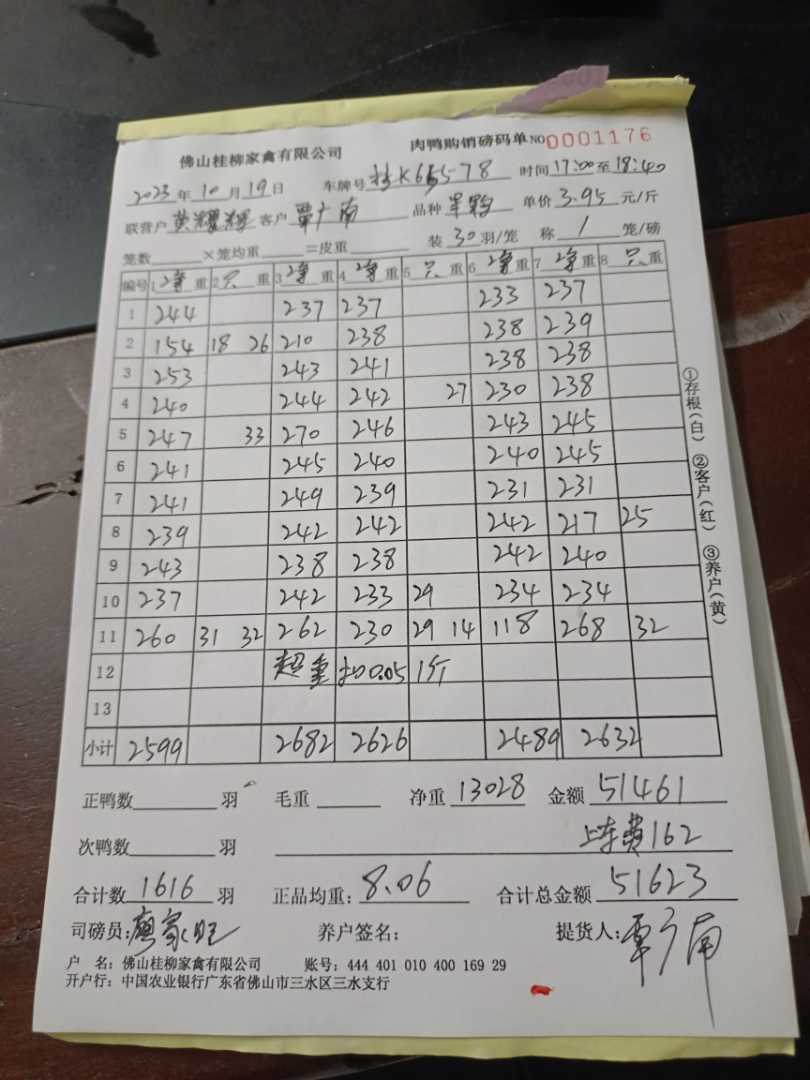 佛山桂柳家禽有限公司 肉鸭购销磅码单 NO0001176
2023年10月19日 车牌号 桂K65578 时间 17:00至18:40
联营户 黄耀辉 客户 覃广南 品种 单价 3.95 元/斤
笼数 ×笼均重 =皮重 装 30 羽/笼 称 1 笼/磅
编号 1 净 重 2 只 重 3 净 重 4 净 重 5 只 重 6 净 重 7 净 重 8 只 重
1 244 237 237 233 237
2 154 18 26 210 238 238 239
3 253 243 241 238 238
4 240 244 242 27 230 238
5 247 33 270 246 243 245
6 241 245 240 240 245
7 241 249 239 231 231
8 239 242 242 242 217 25
9 243 238 238 242 240
10 237 242 233 29 234 234
11 260 31 32 262 230 29 14 118 268 32
12 超重扣0.05 1斤
13
小计 2599 2682 2626 2489 2632
正鸭数 羽 毛重 净重 13028 金额 51461
次鸭数 羽 上车费162
合计数 1616 羽 正品均重: 8.06 合计总金额 51623
司磅员: 廖家旺 养户签名: 提货人: 覃广南
户 名: 佛山桂柳家禽有限公司 账号: 444 401 010 400 169 29
开户行: 中国农业银行广东省佛山市三水区三水支行
①存根(白) ②客户(红) ③养户(黄)